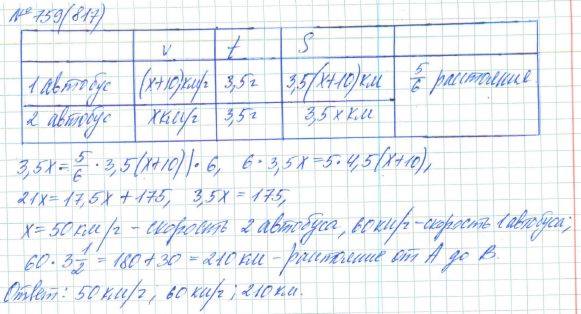 № 759(817)
v t S
1 автобус (x+10)км/г 3,5г 3,5(x+10) км 5/6 растояние
2 автобус x км/г 3,5г 3,5x км
3,5x = 5/6 · 3,5(x+10) | · 6, 6 · 3,5x = 5 · 4,5(x+10),
21x = 17,5x + 175, 3,5x = 175,
x = 50 км/г - скорость 2 автобуса, 60 км/г - скорость 1 автобуса;
60 · 3 1/2 = 180 + 30 = 210 км - растояние от А до В.
Ответ: 50 км/г, 60 км/г; 210 км.